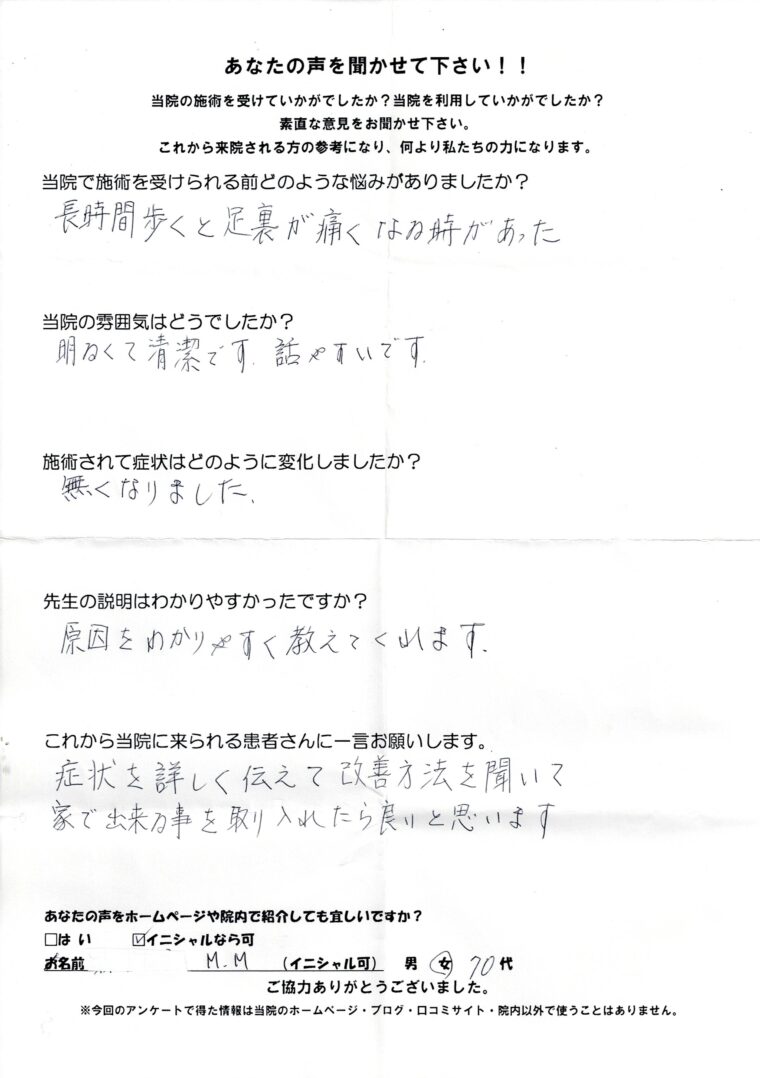 あなたの声を聞かせて下さい！！
当院の施術を受けていかがでしたか？当院を利用していかがでしたか？
素直な意見をお聞かせ下さい。
これから来院される方の参考になり、何より私たちの力になります。
当院で施術を受けられる前どのような悩みがありましたか？
長時間歩くと足裏が痛くなる時があった
当院の雰囲気はどうでしたか？
明るくて清潔です.話やすいです.
施術されて症状はどのように変化しましたか？
無くなりました.
先生の説明はわかりやすかったですか？
原因をわかりやすく教えてくれます.
これから当院に来られる患者さんに一言お願いします。
症状を詳しく伝えて改善方法を聞いて
家で出来る事を取り入れたら良いと思います
あなたの声をホームページや院内で紹介しても宜しいですか？
□はい ☑イニシャルなら可
お名前 M.M （イニシャル可） 男 女 70代
ご協力ありがとうございました。
※今回のアンケートで得た情報は当院のホームページ・ブログ・口コミサイト・院内以外で使うことはありません。